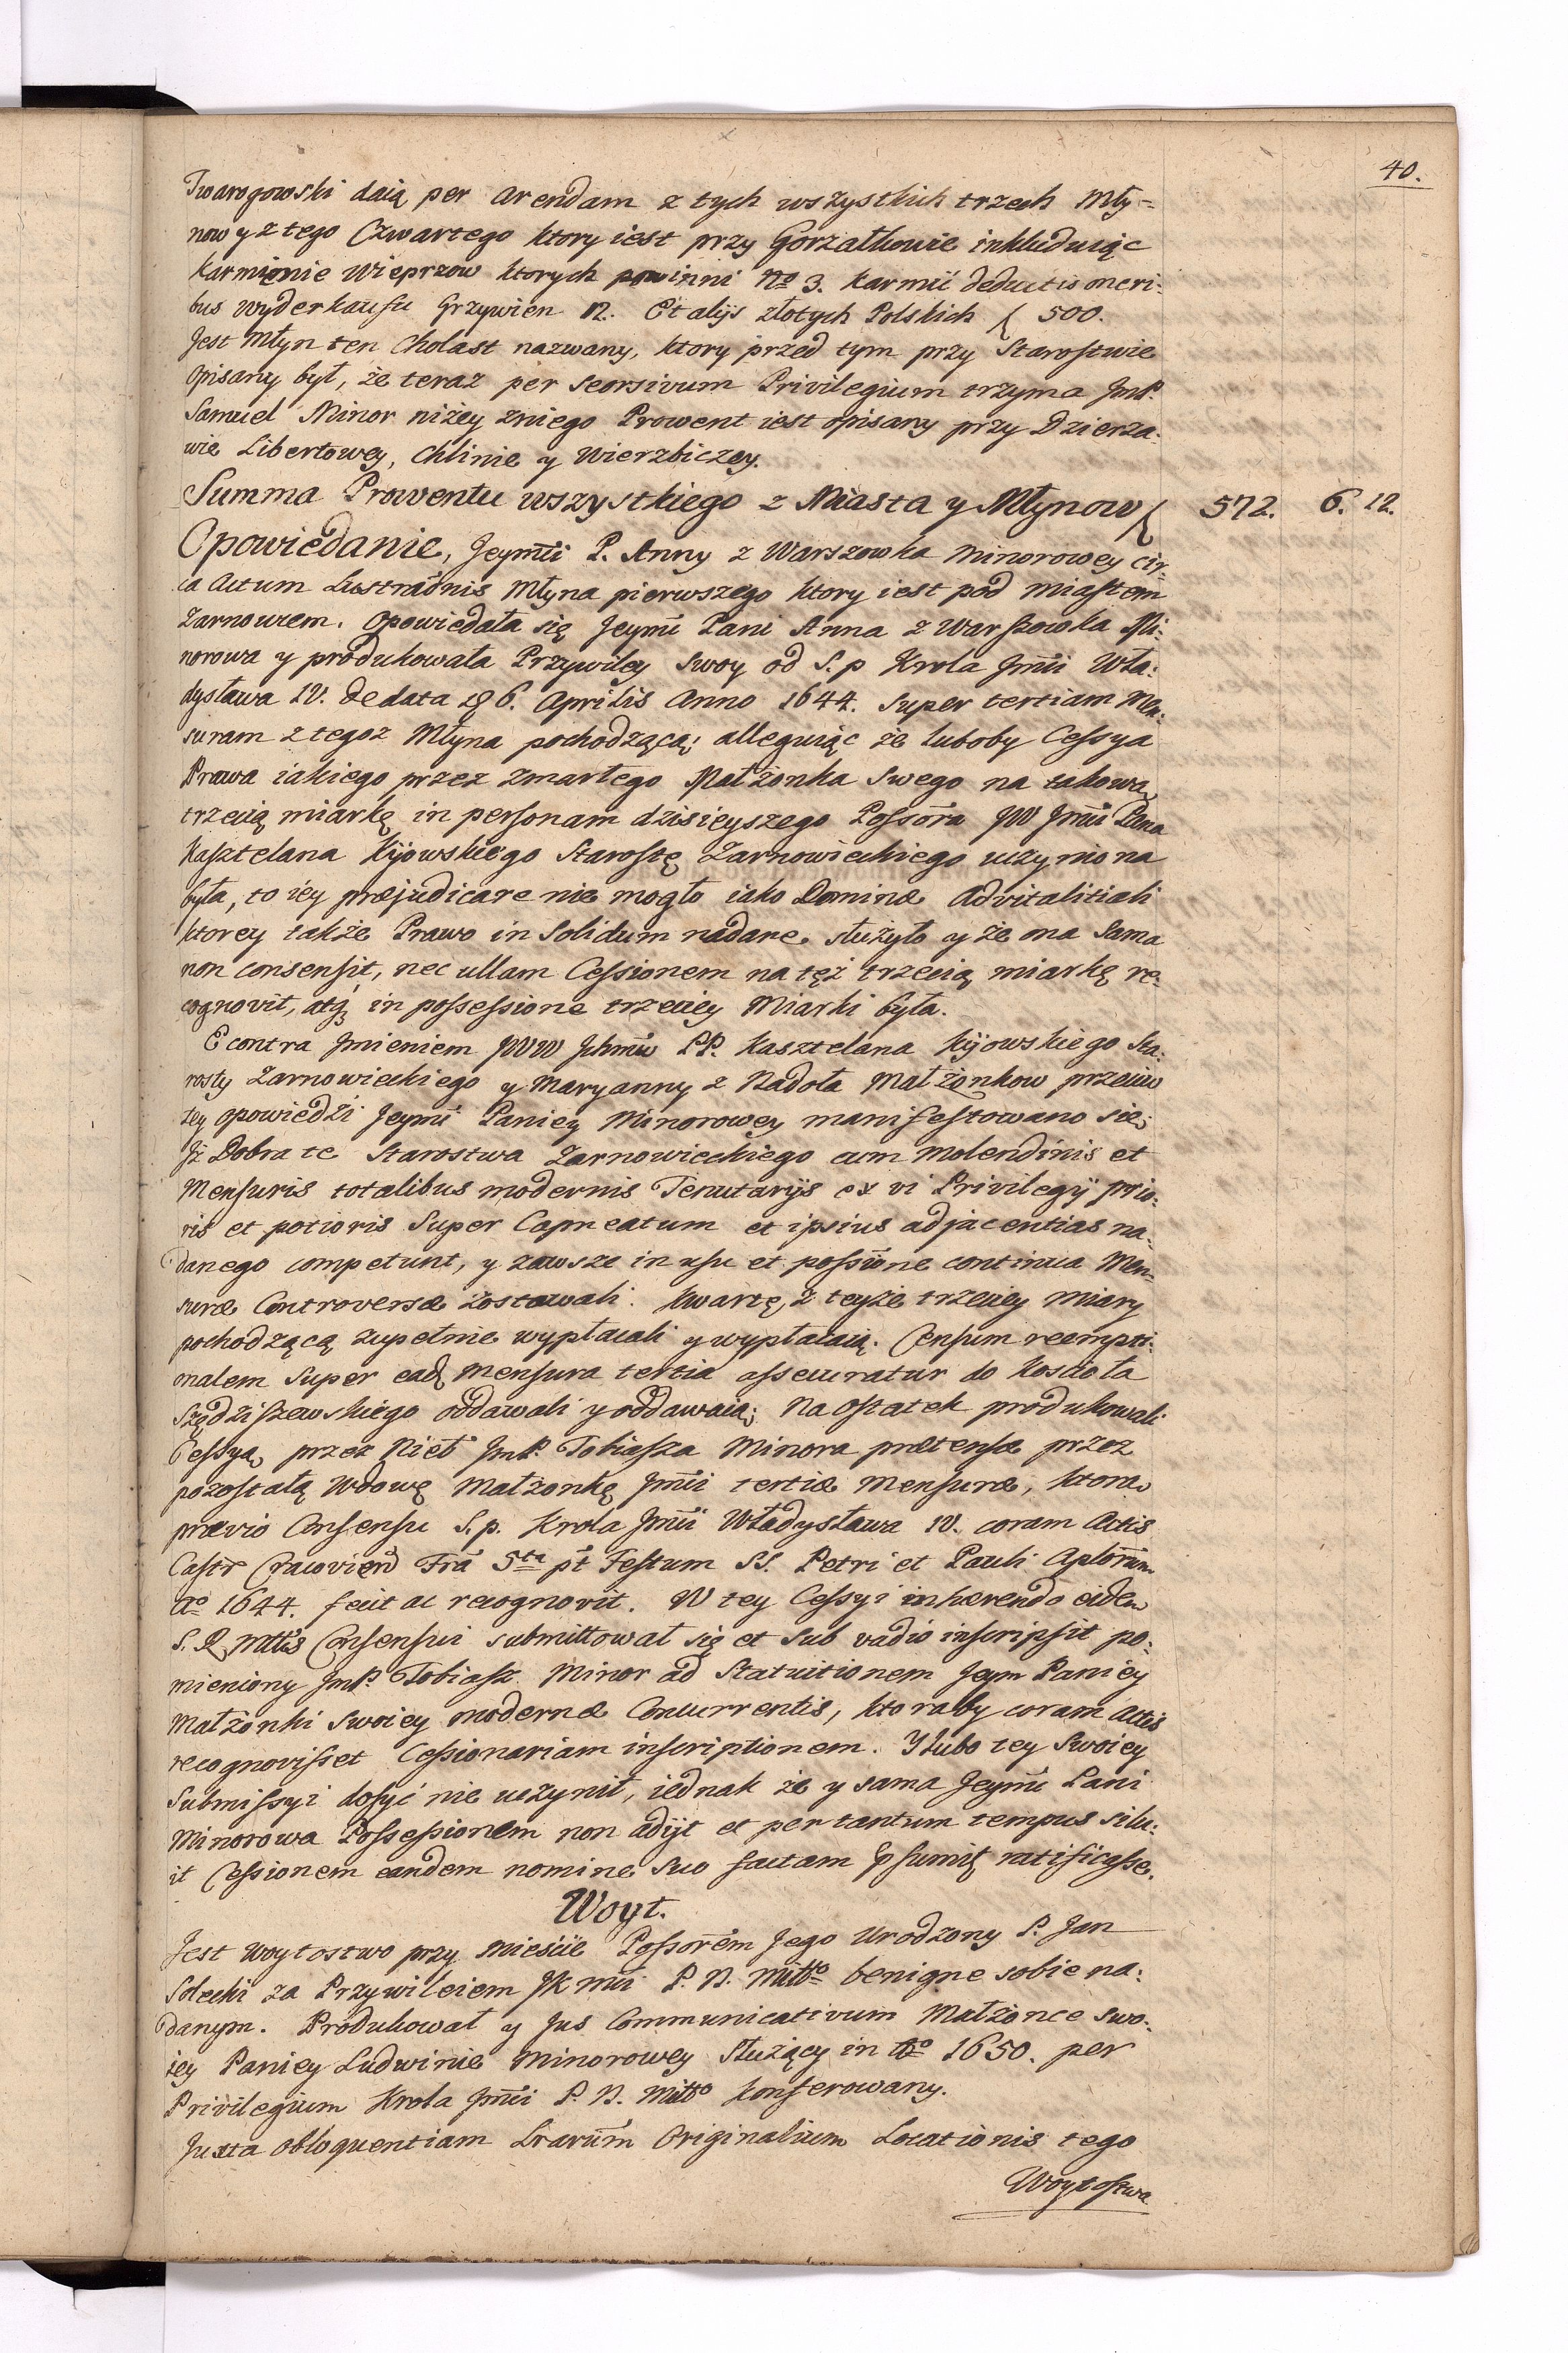 40.
Twarogowski daią per arendam z tych wszystkich trzech Mły=
now y z tego Czwartego ktory iest przy Gorzałkowie inkluduiąc
karmienie Wieprzow ktorych powinni No 3. karmić deductis oneri:
bus Wyderkaufu Grzywien 12. Et alijs złotych Polskich { 500.
Jest Młyn ten Cholast nazwany, ktory przed tym przy Starostwie
opisany był, że teraz per seorsivum Privilegium trzyma JmP.
Samuel Minor niżey zniego Prowent iest opisany przy Dzierża:
wie Libertowey, Chlinie y Wierzbiczey.
Summa Prowentu wszystkiego z Miasta y Młynow { 572. 6. 12.
Opowiedanie, Jeymci P. Anny z Warszowka Minorowey cir:
ca Actum Lustraõnis Młyna pierwszego ktory iest pod miastem
Zarnowiem. Opowiedała się Jeymci Pani Anna z Warszowka Mi:
norowa y produkowała Przywiley Swoy od S. p Krola Jmci Wła:
dysława IV. de data 26. Aprilis Anno 1644. super tertiam Men:
suram z tegoz Młyna pochodzącą; alleguiąc że luboby Cessya
Prawa iakiego przez zmarłego Małżonka Swego na takową
trzecią miarkę in personam dzisieyszego Possora JW Jmci Pana
Kasztelana Kijowskiego Starostę Zarnowieckiego uczyniona
była, to iey præjudicare nie mogło iako Dominæ Advitalitiali
ktorey także Prawo in Solidum nadane służyło y że ona Sama
non consensit, nec ullam Cessionem na też trzecią miarkę re:
cognovit, atq in possessione trzeciey Miarki była.
E contra Jmieniem JWW Jchmciow PP. Kasztelana Kijowskiego Sta:
rosty Zarnowieckiego y Maryanny z Nadoła Małżonkow przeciw
tey opowiedzi Jeymci Paniey Minorowey manifestowano się;
Jż Dobra te Starostwa Zarnowieckiego cum Molendinis et
Mensuris totalibus modernis Tenutarijs ex vi Privilegij prio:
ris et potioris Super Capneatum et ipsius adjacentias na:
danego competunt, y zawsze in usu et possione continua Men:
suræ Controversæ zostawali. Kwartę z teyże trzeciey miary
pochodzącą zupełnie wypłacali y wypłacaią. Censum reempti:
onalem Super eadę Mensura tertia assecuratur do Kościoła
Szędziszewskiego oddawali y oddawaią; Na ostatek produkowali
Cessyą przez Niet JmP. Tobiasza Minora prætensæ przez
pozostałą Wdowę Małżonkę Jmci tertiæ Mensuræ, ktora
prævio Consensu S. p. Krola Jmci Władysława IV. coram Actis
Castr Cracovien Fra 5ta pt Festum SS. Petri et Pauli Aplorum
Ao 1644. fecit ac recognovit. W tey Cessyi inherendo eidem
S. R. Mttis Consensui submittował się et sub vadio inscripsit po:
mieniony JmP. Tobiasz Minor ad Statuitionem Jeym Paniey
Małżonki Swoiey modernæ Concurrentis, ktoraby coram Actis
recognovisset Cessionariam inscriptionem. Y lubo tey Swoiey
Submissyi dosyć nie uczynił, iednak że y sama Jeymci Pani
Minorowa Possessionem non adijt et per tantum tempus silu:
it Cessionem eandem nomine suo factam psumit ratificasse.
Woyt.
Jest Woytostwo przy Mieście Possorem Jego Urodzony P. Jan
Solecki za Przywileiem JK mci P. N. Mttto benigne sobie na:
danym. Produkował y Jus Communicativum Małżonce Swo:
iey Paniey Ludwinie Minorowey służący in Ao 1650. per
Privilegium Krola Jmci P. N. Mttto konferowany.
Juxta obloquentiam Lrarum Originalium Locationis tego
Woytostwa